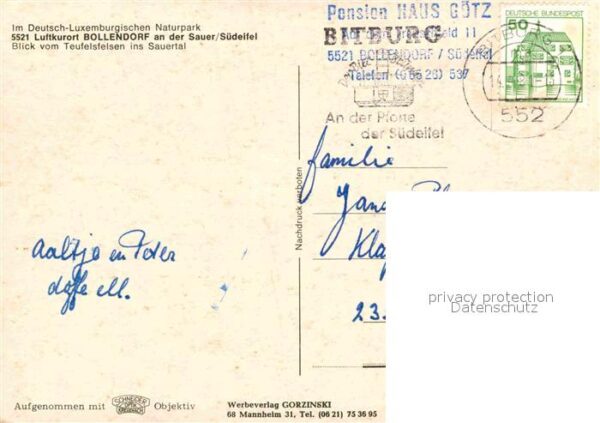 Im Deutsch-Luxemburgischen Naturpark
5521 Luftkurort BOLLENDORF an der Sauer/Südeifel
Blick vom Teufelsfelsen ins Sauertal
Pension HAUS GÖTZ
BITBURG
11
5521 BOLLENDORF / Südeifel
Telefon (0 65 26) 537
An der Pforte
der Südeifel
DEUTSCHE BUNDESPOST
50
BITBURG
552
familie
23.
Aaltje en Peter
Nachdruck verboten
privacy protection
Datenschutz
Aufgenommen mit SCHNEIDER KREUZNACH Objektiv
Werbeverlag GORZINSKI
68 Mannheim 31, Tel. (06 21) 75 36 95